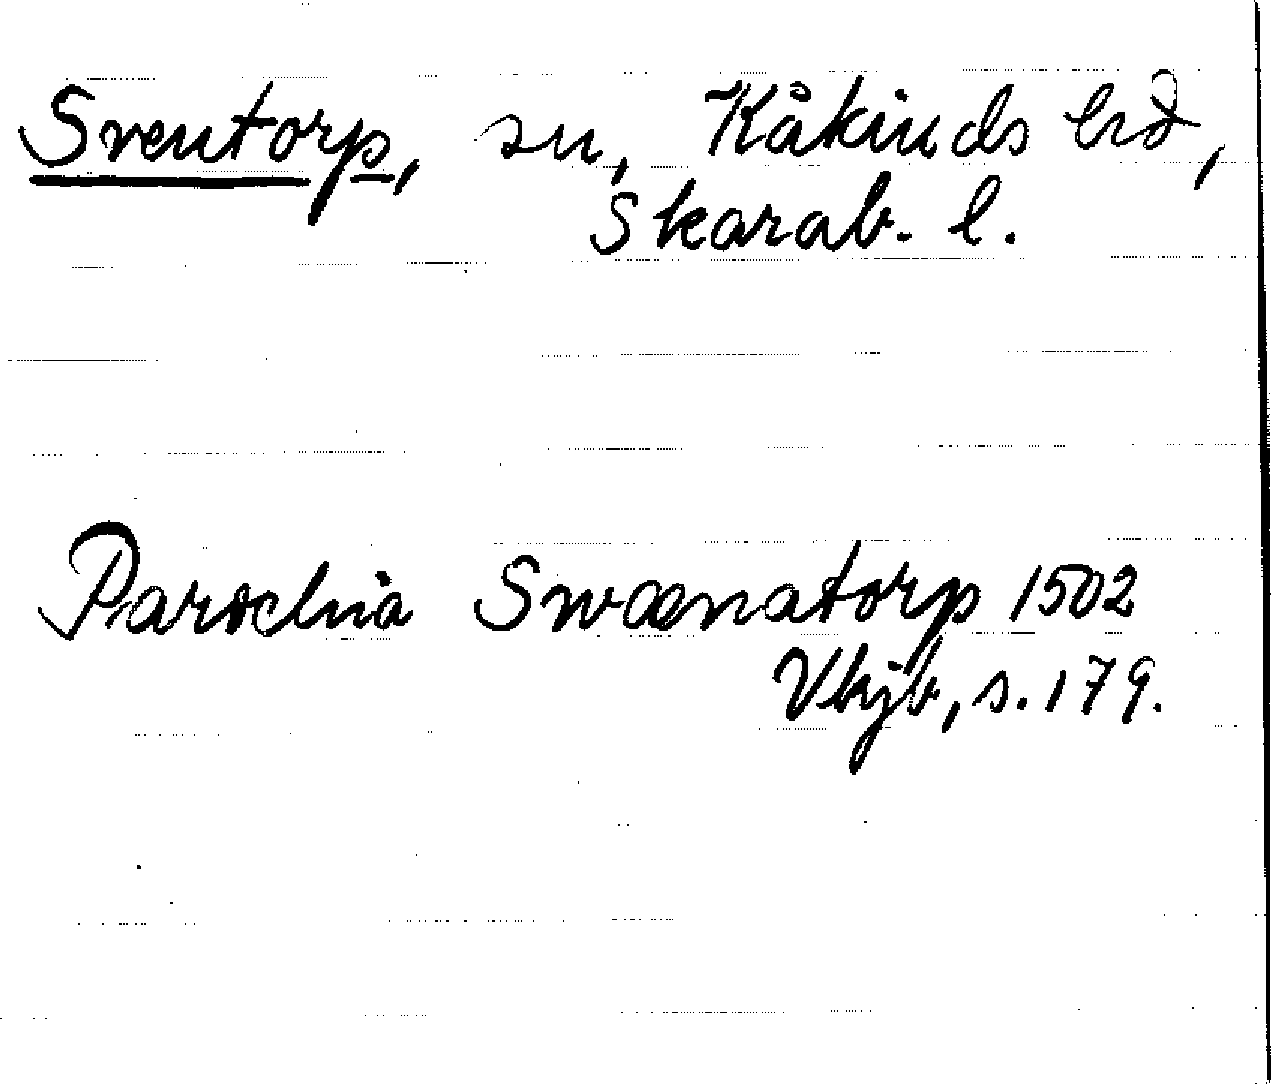 Sventorp, sn, Kåkinds hd,
Skarab. l.
Parochia Swænatorp 1502
Vkjb, s. 179.